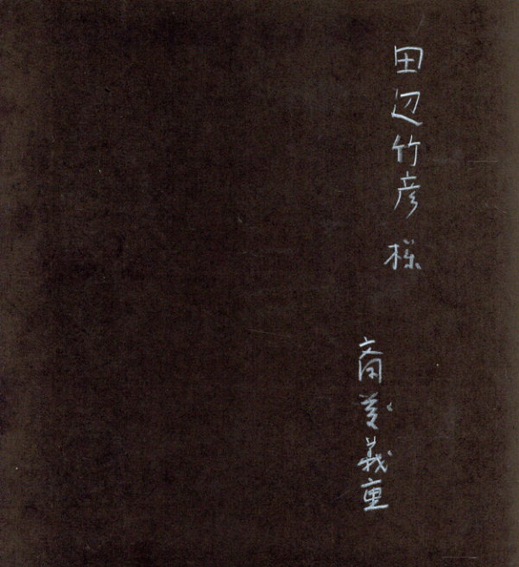 田辺竹彦様
斎藤義重